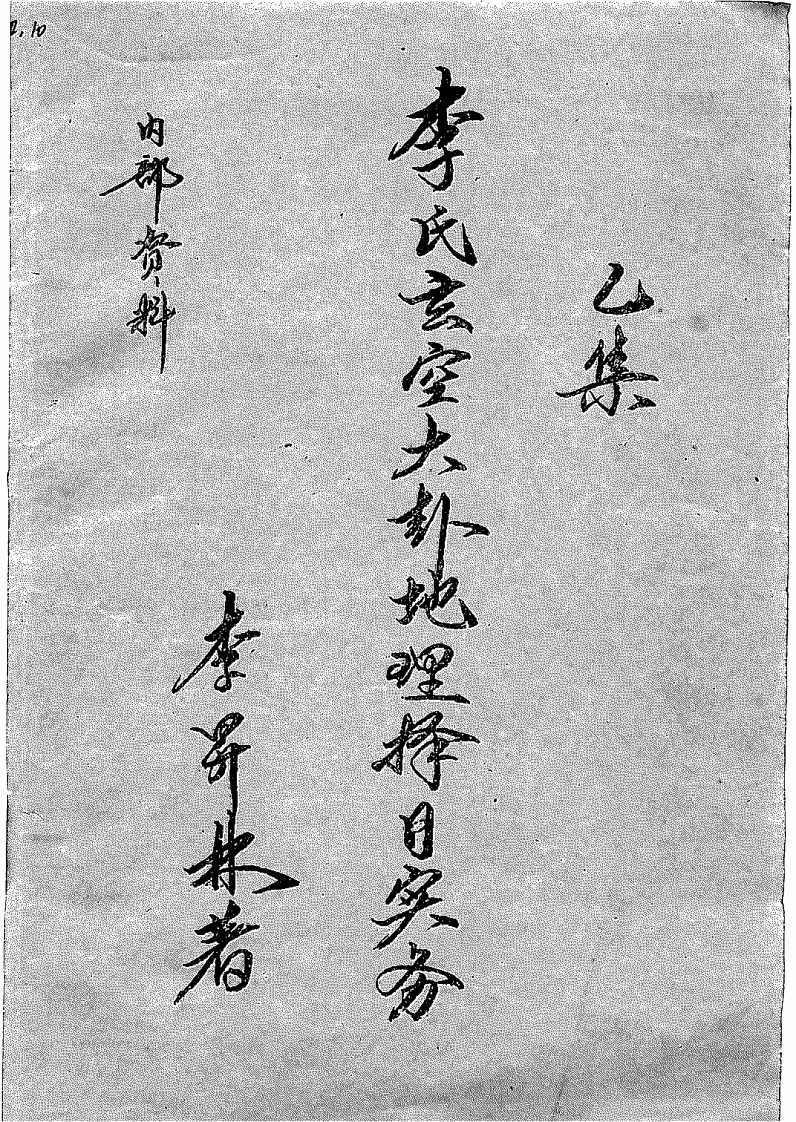 乙集
李氏玄空大卦地理择日实务
李 林著
内部资料